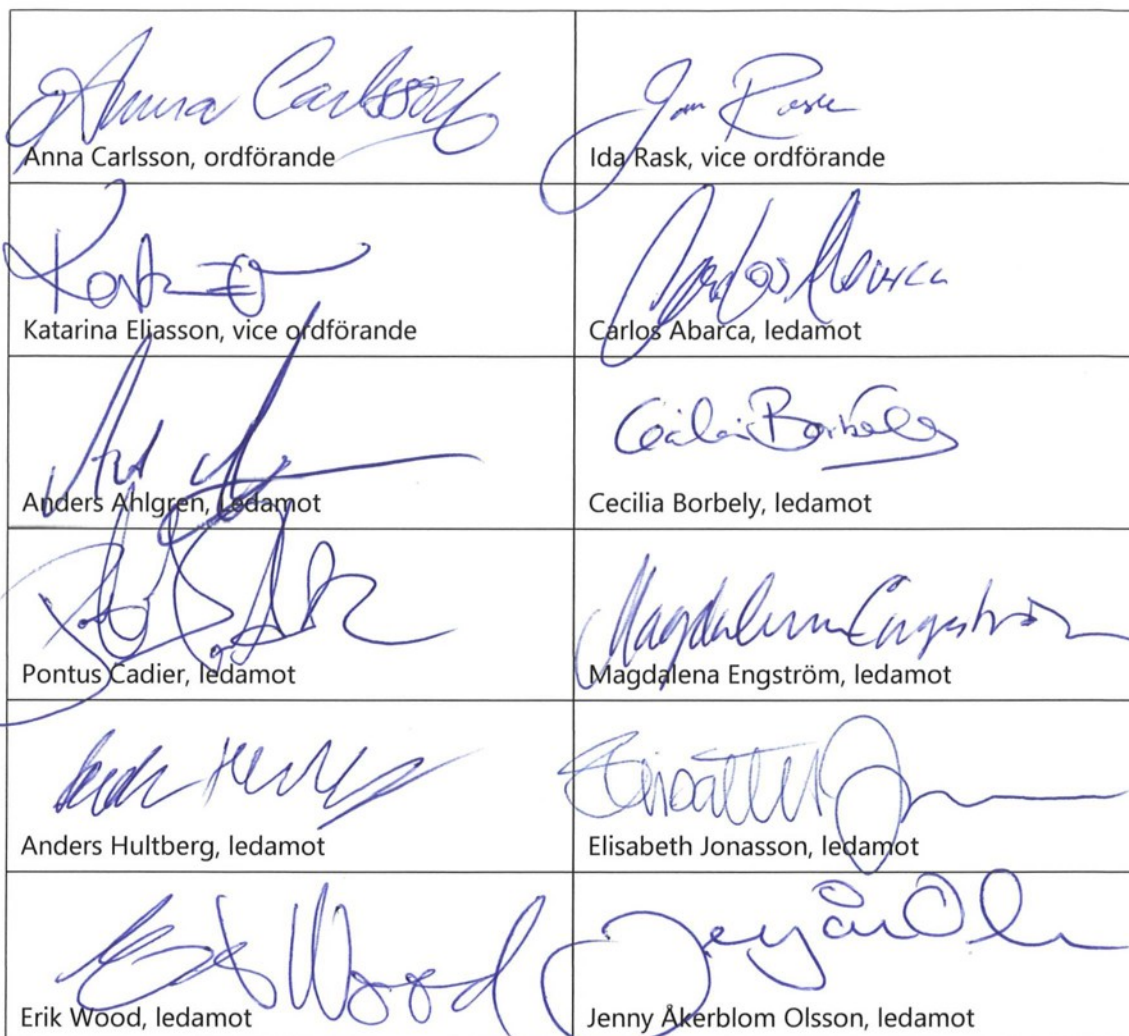 Anna Carlsson
Anna Carlsson, ordförande
Ida Rask, vice ordförande
Katarina Eliasson, vice ordförande
Carlos Abarca
Carlos Abarca, ledamot
Anders Ahlgren, Ledamot
Cecilia Borbely
Cecilia Borbely, ledamot
Pontus Cadier, ledamot
Magdalena Engström
Magdalena Engström, ledamot
Anders Hultberg, ledamot
Elisabeth Jonasson, ledamot
Erik Wood
Erik Wood, ledamot
Jenny Åkerblom Olsson, ledamot